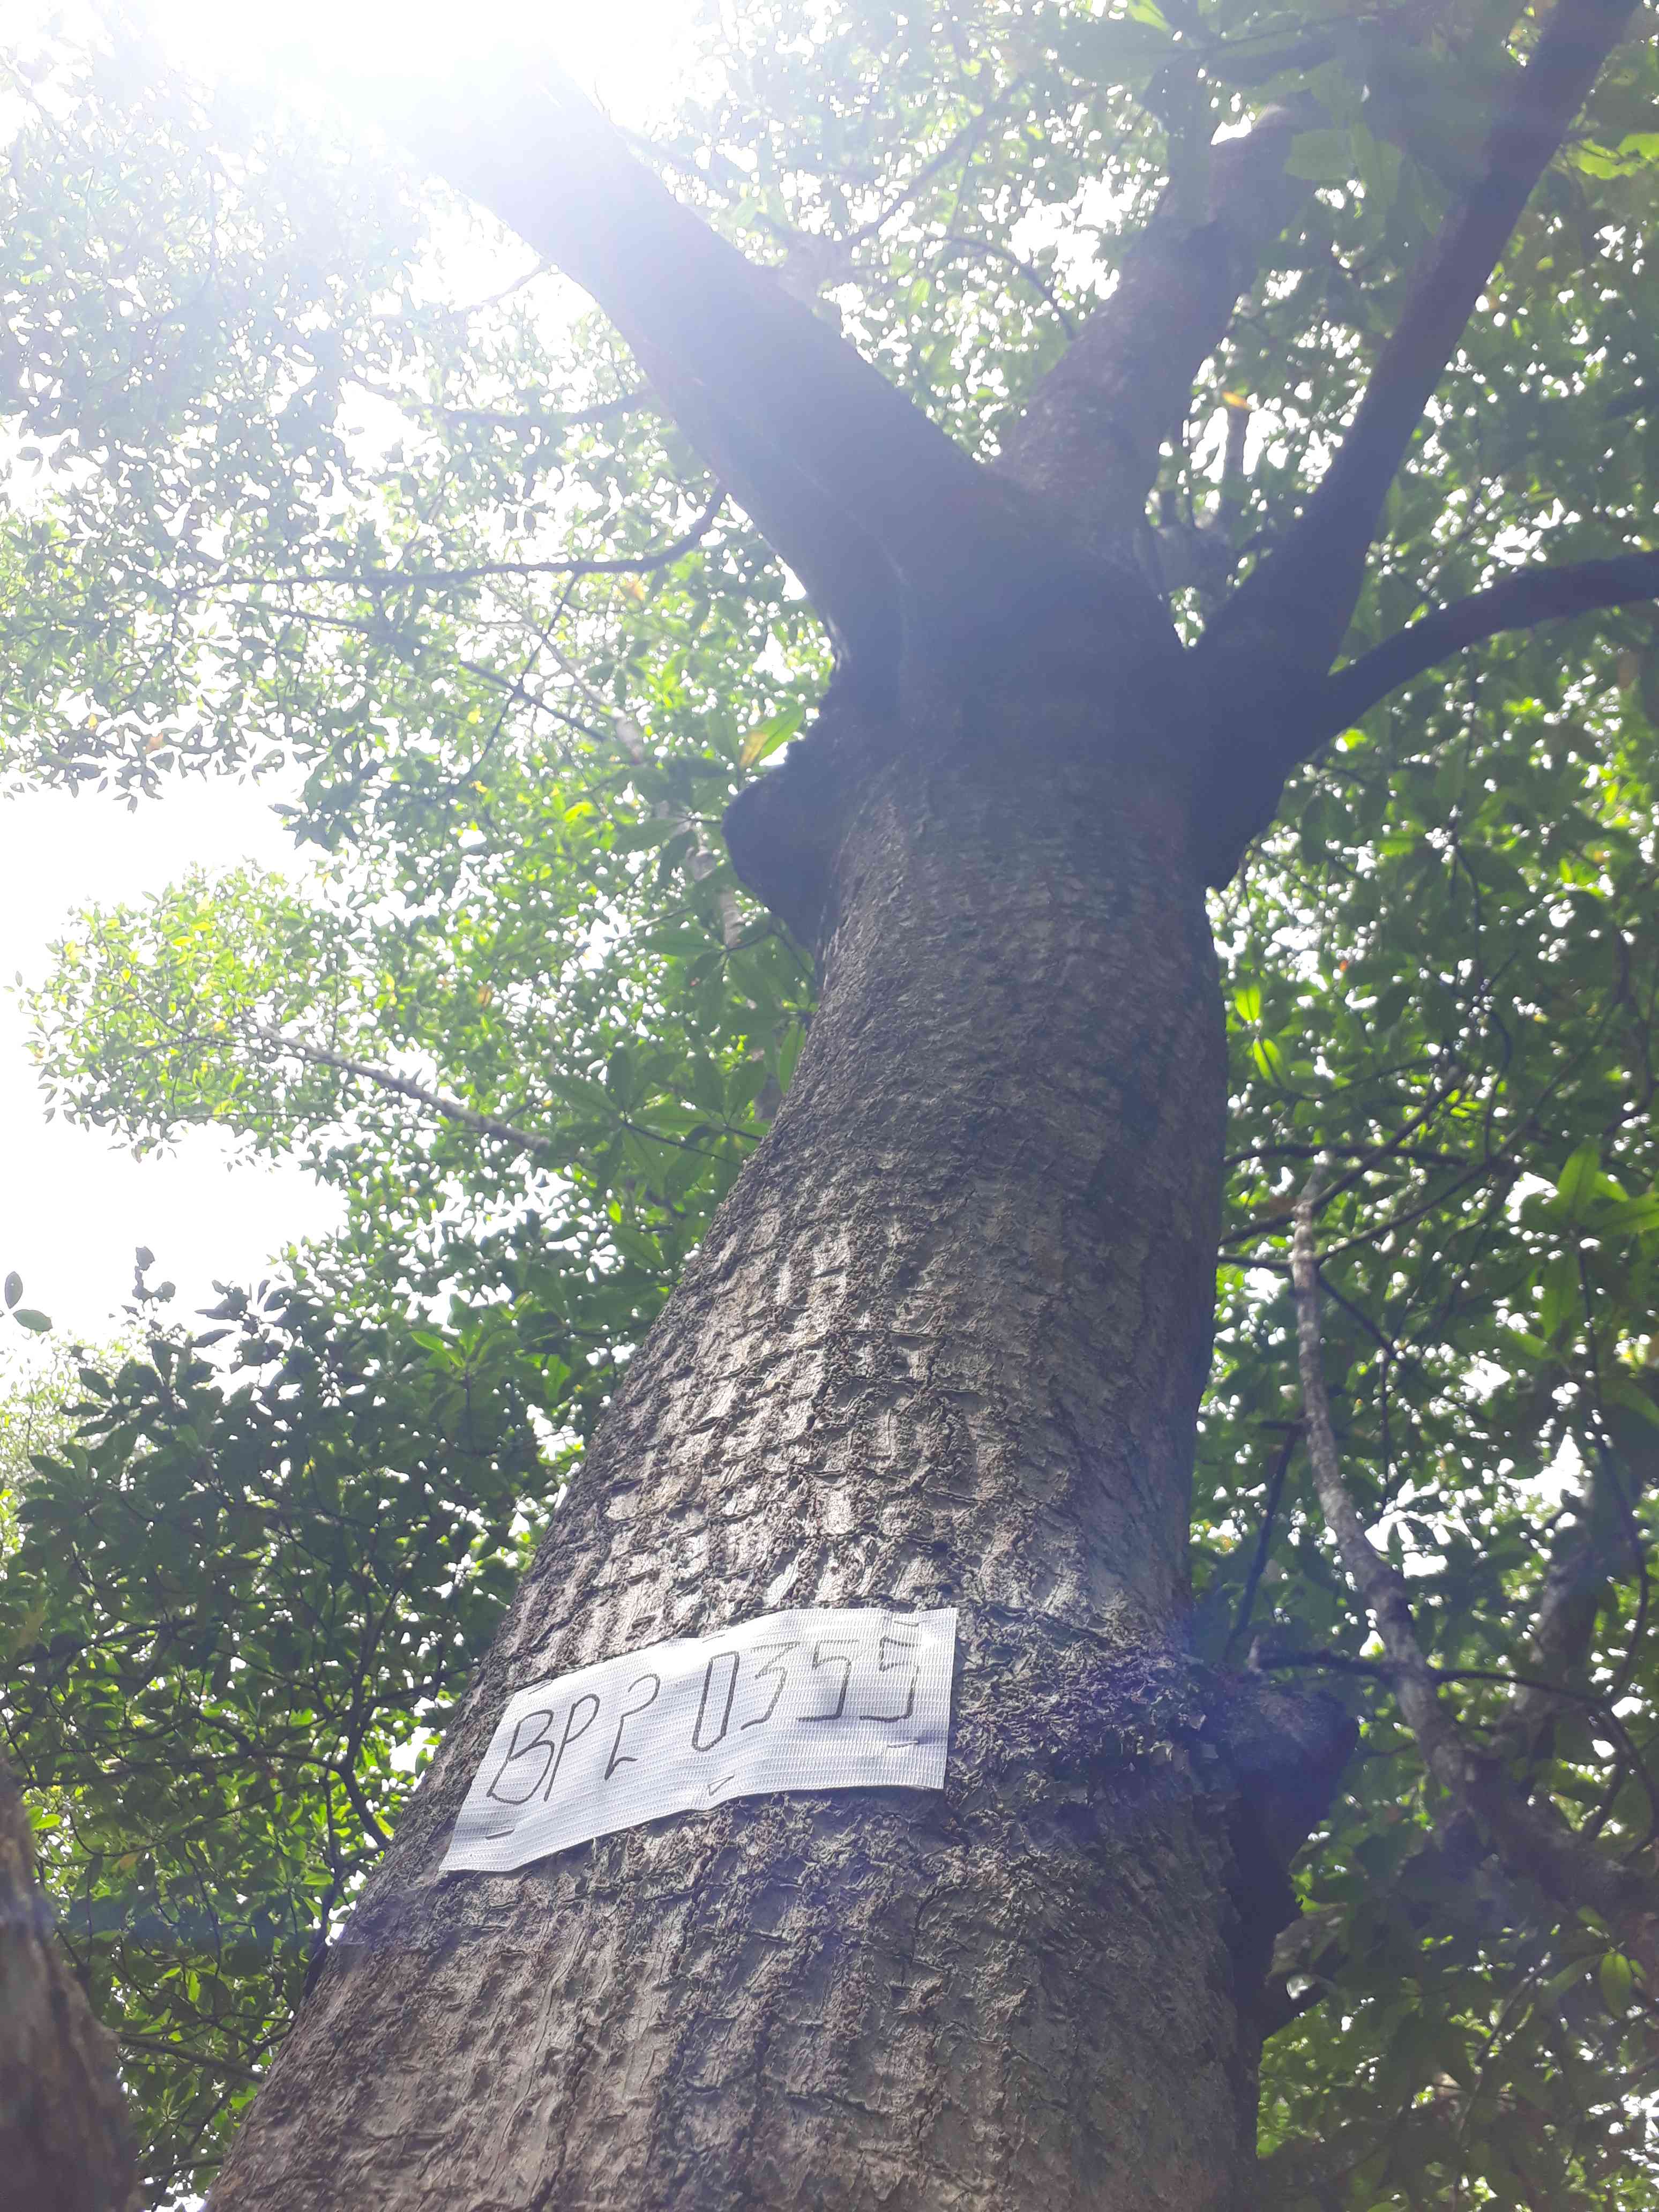 BP2 0355